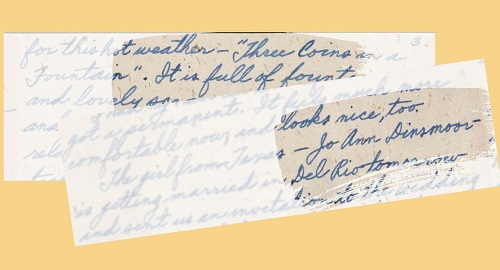 3.
for this hot weather — "Three Coins in a
Fountain". It is full of fount
and lovely
and
got a permanent. It feels much more
comfortable now and looks nice, too.
The girl from Texas — Jo Ann Dinsmoor —
is getting married in Del Rio tomorrow
and sent us an invitation to the wedding